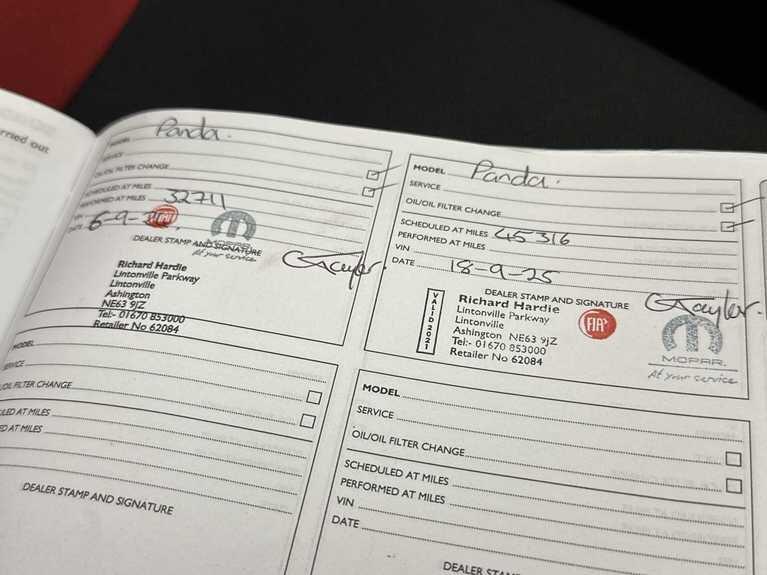 rried out
MODEL Panda.
SERVICE
OIL/OIL FILTER CHANGE
SCHEDULED AT MILES
PERFORMED AT MILES 32711
VIN
DATE 6-9-
FIAT
MOPAR
At your service
DEALER STAMP AND SIGNATURE
GTayler.
Richard Hardie
Lintonville Parkway
Lintonville
Ashington
NE63 9JZ
Tel:- 01670 853000
Retailer No 62084
MODEL Panda.
SERVICE
OIL/OIL FILTER CHANGE
SCHEDULED AT MILES
PERFORMED AT MILES 45316
VIN
DATE 18-9-25
DEALER STAMP AND SIGNATURE
VALID 2021
Richard Hardie
Lintonville Parkway
Lintonville
Ashington NE63 9JZ
Tel:- 01670 853000
Retailer No 62084
FIAT
GTayler.
MOPAR.
At your service
MODEL
SERVICE
OIL/OIL FILTER CHANGE
SCHEDULED AT MILES
ED AT MILES
DEALER STAMP AND SIGNATURE
MODEL
SERVICE
OIL/OIL FILTER CHANGE
SCHEDULED AT MILES
PERFORMED AT MILES
VIN
DATE
DEALER STAMP AND SIG